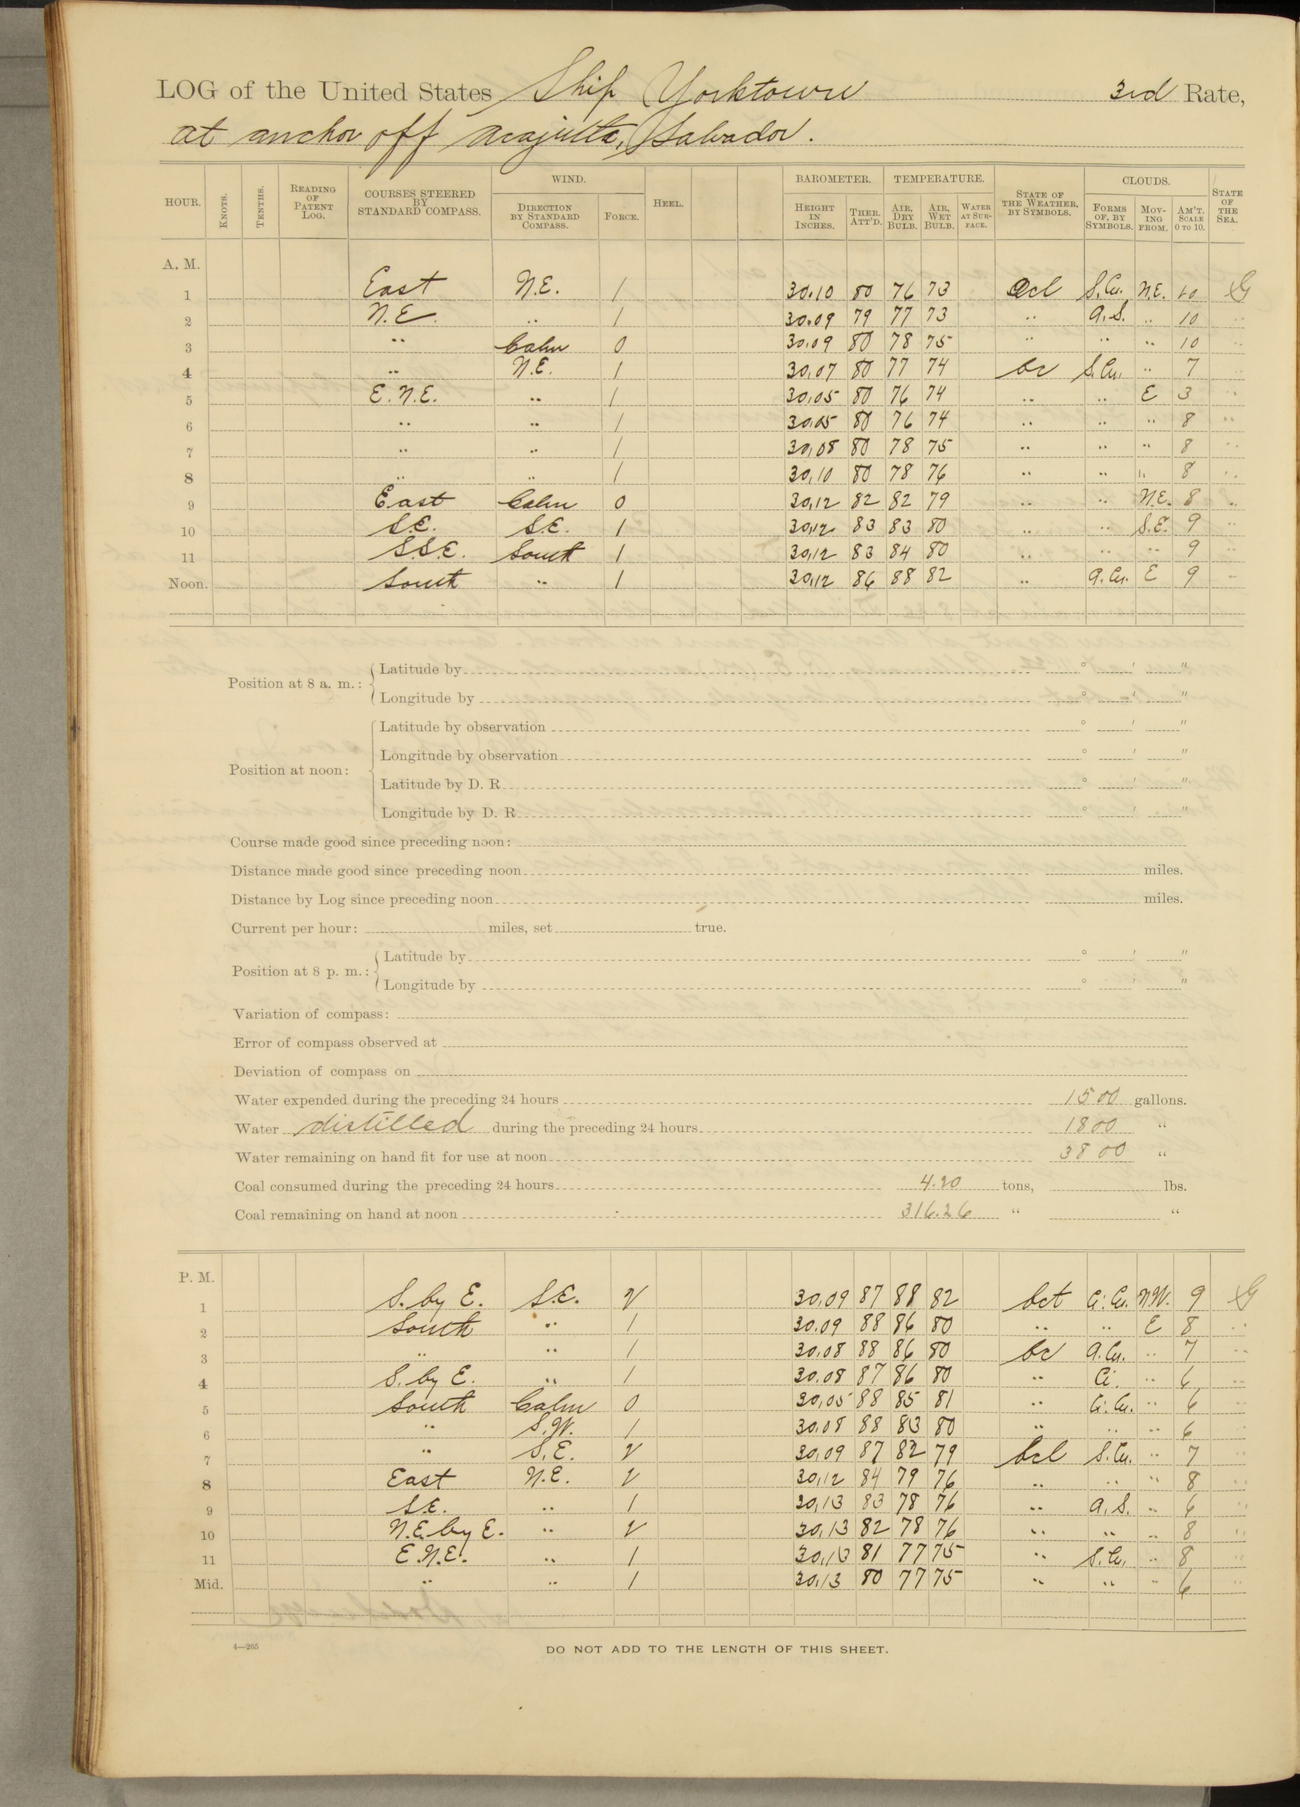 LOG of the United States Ship Yorktown 3rd Rate,
at anchor off Acajutla, Salvador.
HOUR. KNOTS. TENTHS. READING OF PATENT LOG. COURSES STEERED BY STANDARD COMPASS. WIND. DIRECTION BY STANDARD COMPASS. FORCE. HEEL. BAROMETER. HEIGHT IN INCHES. THER. ATT'D. TEMPERATURE. AIR, DRY BULB. AIR, WET BULB. WATER AT SURFACE. STATE OF THE WEATHER, BY SYMBOLS. CLOUDS. FORMS OF, BY SYMBOLS. MOVING FROM. AM'T. SCALE 0 TO 10. STATE OF THE SEA.
A. M.
1 East N.E. 1 30.10 80 76 73 ocl S.Cu. N.E. 10 G
2 N.E. " 1 30.09 79 77 73 " A.S. " 10 "
3 " Calm 0 30.09 80 78 75 " " " 10 "
4 " N.E. 1 30.07 80 77 74 bc S.Cu. " 7 "
5 E.N.E. " 1 30.05 80 76 74 " " E 3 "
6 " " 1 30.05 80 76 74 " " " 8 "
7 " " 1 30.08 80 78 75 " " " 8 "
8 " " 1 30.10 80 78 76 " " " 8 "
9 East Calm 0 30.12 82 82 79 " " N.E. 8 "
10 S.E. S.E. 1 30.12 83 83 80 " " S.E. 9 "
11 SSE. South 1 30.12 83 84 80 " " " 9 "
Noon. South " 1 30.12 86 88 82 " A.Cu. E 9 "
Position at 8 a. m.: Latitude by ° ' "
Longitude by ° ' "
Position at noon: Latitude by observation ° ' "
Longitude by observation ° ' "
Latitude by D. R ° ' "
Longitude by D. R ° ' "
Course made good since preceding noon:
Distance made good since preceding noon miles.
Distance by Log since preceding noon miles.
Current per hour: miles, set true.
Position at 8 p. m.: Latitude by ° ' "
Longitude by ° ' "
Variation of compass:
Error of compass observed at
Deviation of compass on
Water expended during the preceding 24 hours 1500 gallons.
Water distilled during the preceding 24 hours 1800 "
Water remaining on hand fit for use at noon 3800 "
Coal consumed during the preceding 24 hours 4.20 tons, lbs.
Coal remaining on hand at noon 316.26 " "
P. M.
1 S. by E. S.E. 2 30.09 87 88 82 bct Ci.Cu. N.W. 9 G
2 South " 1 30.09 88 86 80 " " E 8 "
3 " " 1 30.08 88 86 80 bc A.Cu. " 7 "
4 S. by E. " 1 30.08 87 86 80 " Ci. " 6 "
5 South Calm 0 30.05 88 85 81 " Ci.Cu. " 6 "
6 " S.W. 1 30.08 88 83 80 " " " 6 "
7 " S.E. 2 30.09 87 82 79 bcl S.Cu. " 7 "
8 East N.E. 2 30.12 84 79 76 " " " 8 "
9 S.E. " 1 30.13 83 78 76 " A.S. " 6 "
10 N.E. by E. " 2 30.13 82 78 76 " " " 8 "
11 E.N.E. " 1 30.13 81 77 75 " S.Cu. " 8 "
Mid. " " 1 30.13 80 77 75 " " " 6 "
4—265
DO NOT ADD TO THE LENGTH OF THIS SHEET.